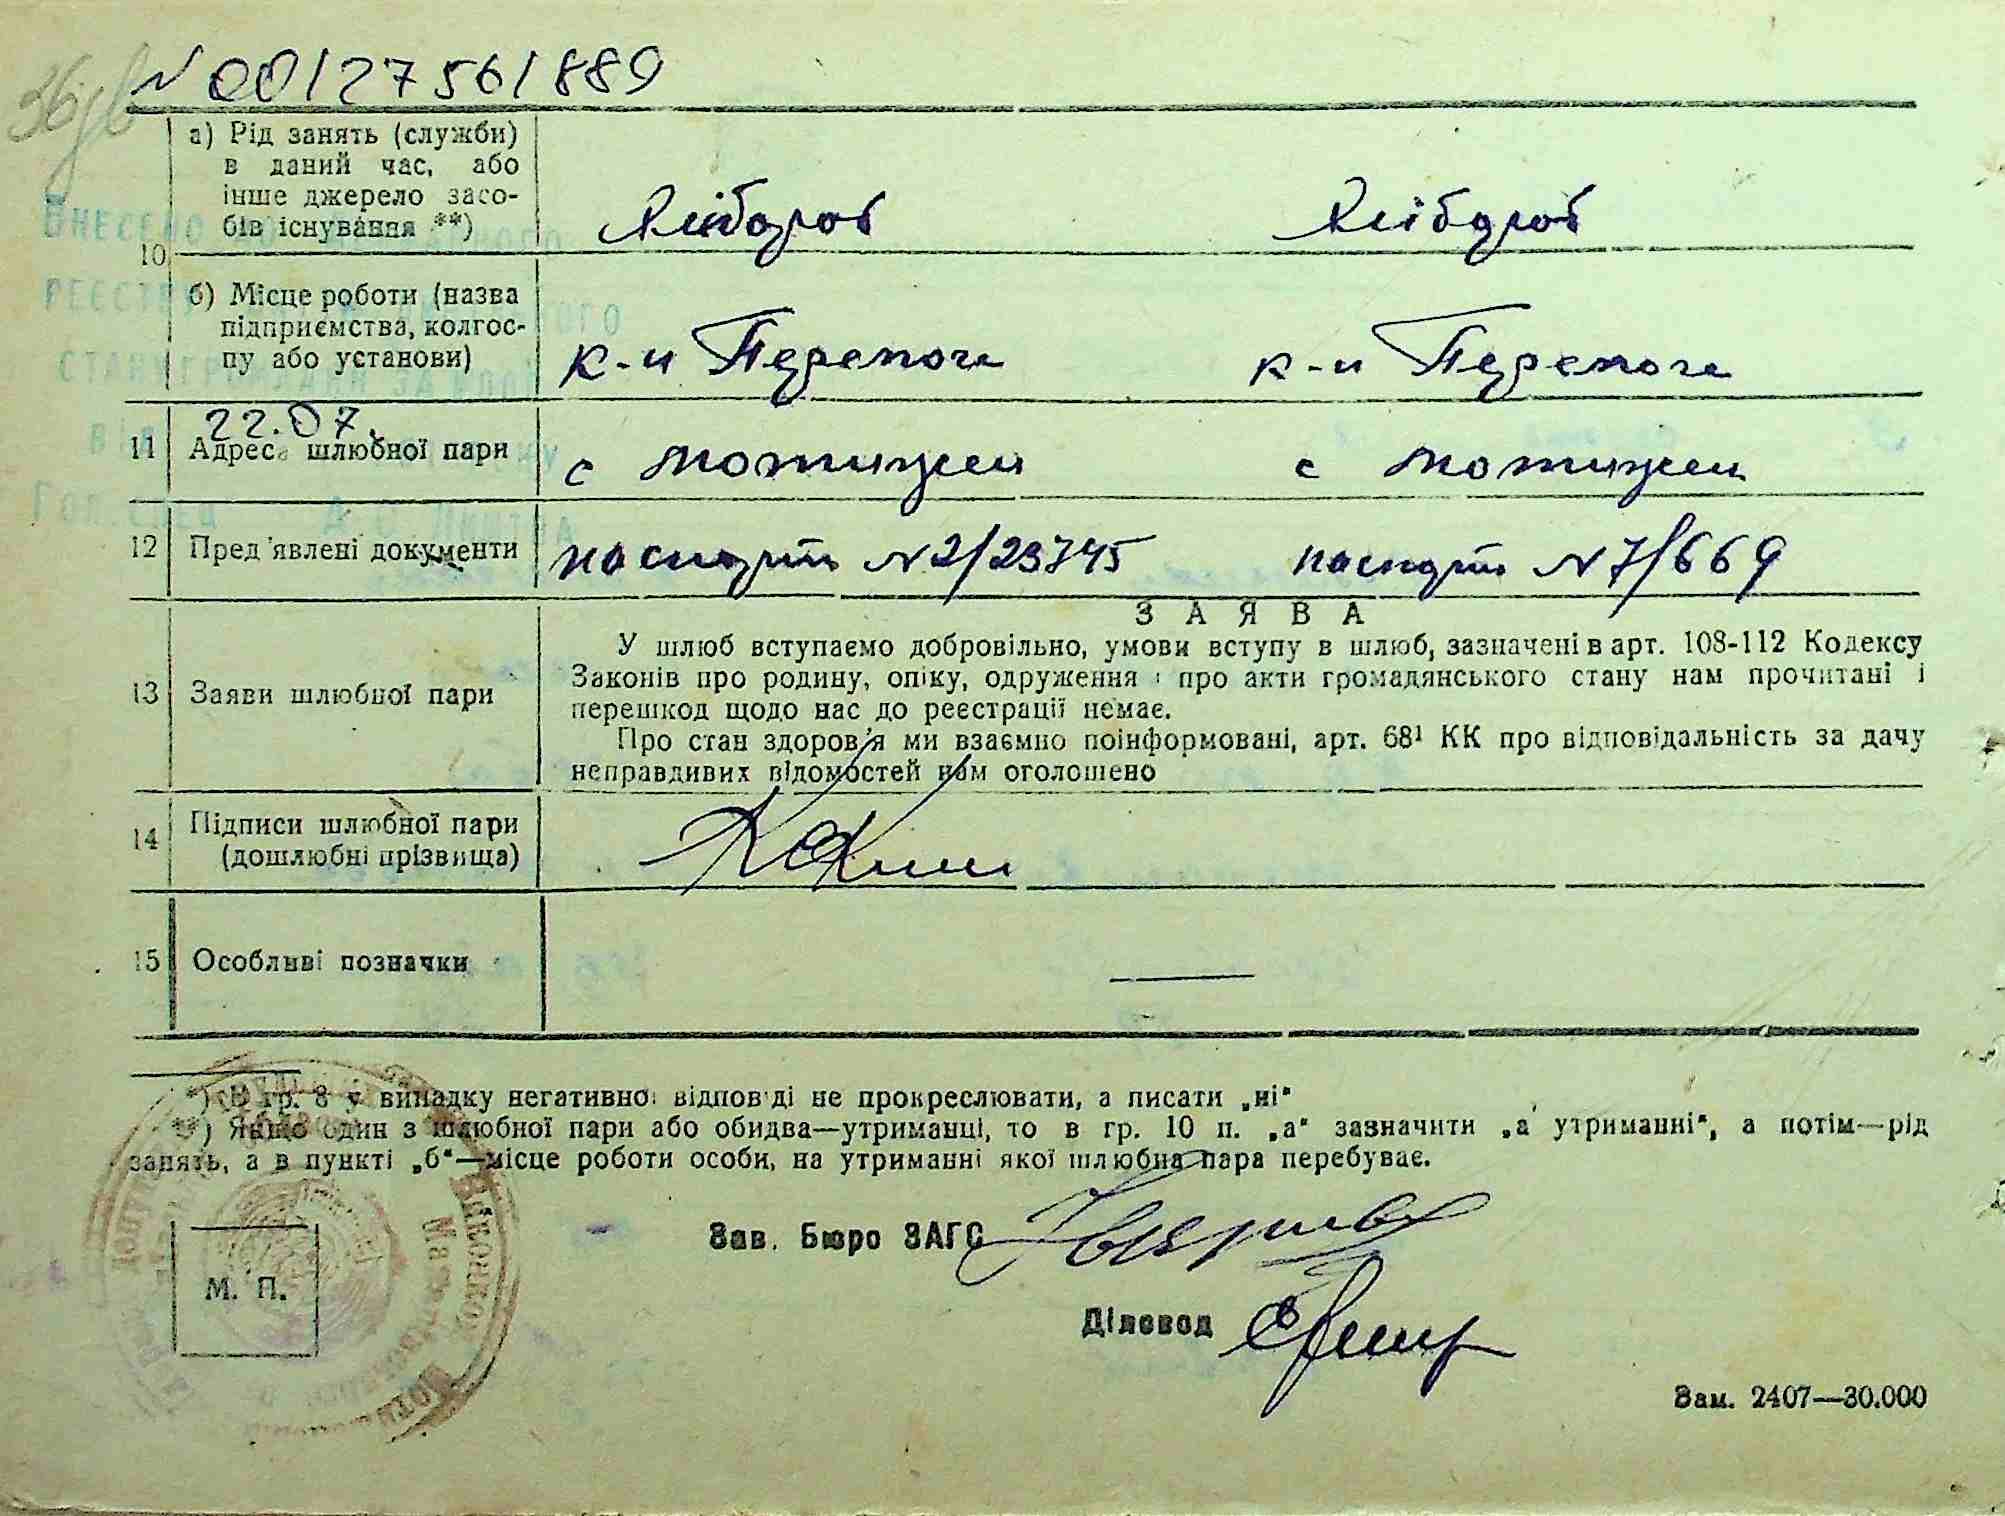 N 00127561889
а) Рід занять (служби)
в даний час, або
інше джерело засо-
бів існування **)
Хлібороб Хлібороб
10
б) Місце роботи (назва
підприємства, колгос-
пу або установи)
к-п Перемога к-п Перемога
22.07.
11 Адреса шлюбної пари с Мотижин с Мотижин
12 Пред'явлені документи паспорт N 2/23745 паспорт N 7/669
ЗАЯВА
У шлюб вступаємо добровільно, умови вступу в шлюб, зазначені в арт. 108-112 Кодексу
Законів про родину, опіку, одруження і про акти громадянського стану нам прочитані і
перешкод щодо нас до реєстрації немає.
Про стан здоров'я ми взаємно поінформовані, арт. 68¹ КК про відповідальність за дачу
неправдивих відомостей нам оголошено
13 Заяви шлюбної пари
14 Підписи шлюбної пари
(дошлюбні прізвища)
15 Особливі позначки —
*) В гр. 8 у випадку негативної відповіді не прокреслювати, а писати „ні“
**) Якщо один з шлюбної пари або обидва—утриманці, то в гр. 10 п. „а“ зазначити „а утриманні“, а потім—рід
занять, а в пункті „б“—місце роботи особи, на утриманні якої шлюбна пара перебуває.
Зав. Бюро ЗАГС
М. П.
Діловод
Зам. 2407—30.000